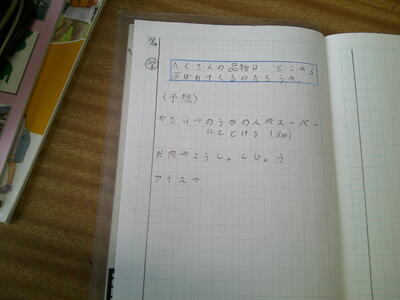 11/14
学
たくさんの品物は、どこから
運ばれてくるのだろうか。
〈予想〉
やさい→のうかの人がスーパー
にとどける
お肉→こうじょくじょう
アイス→